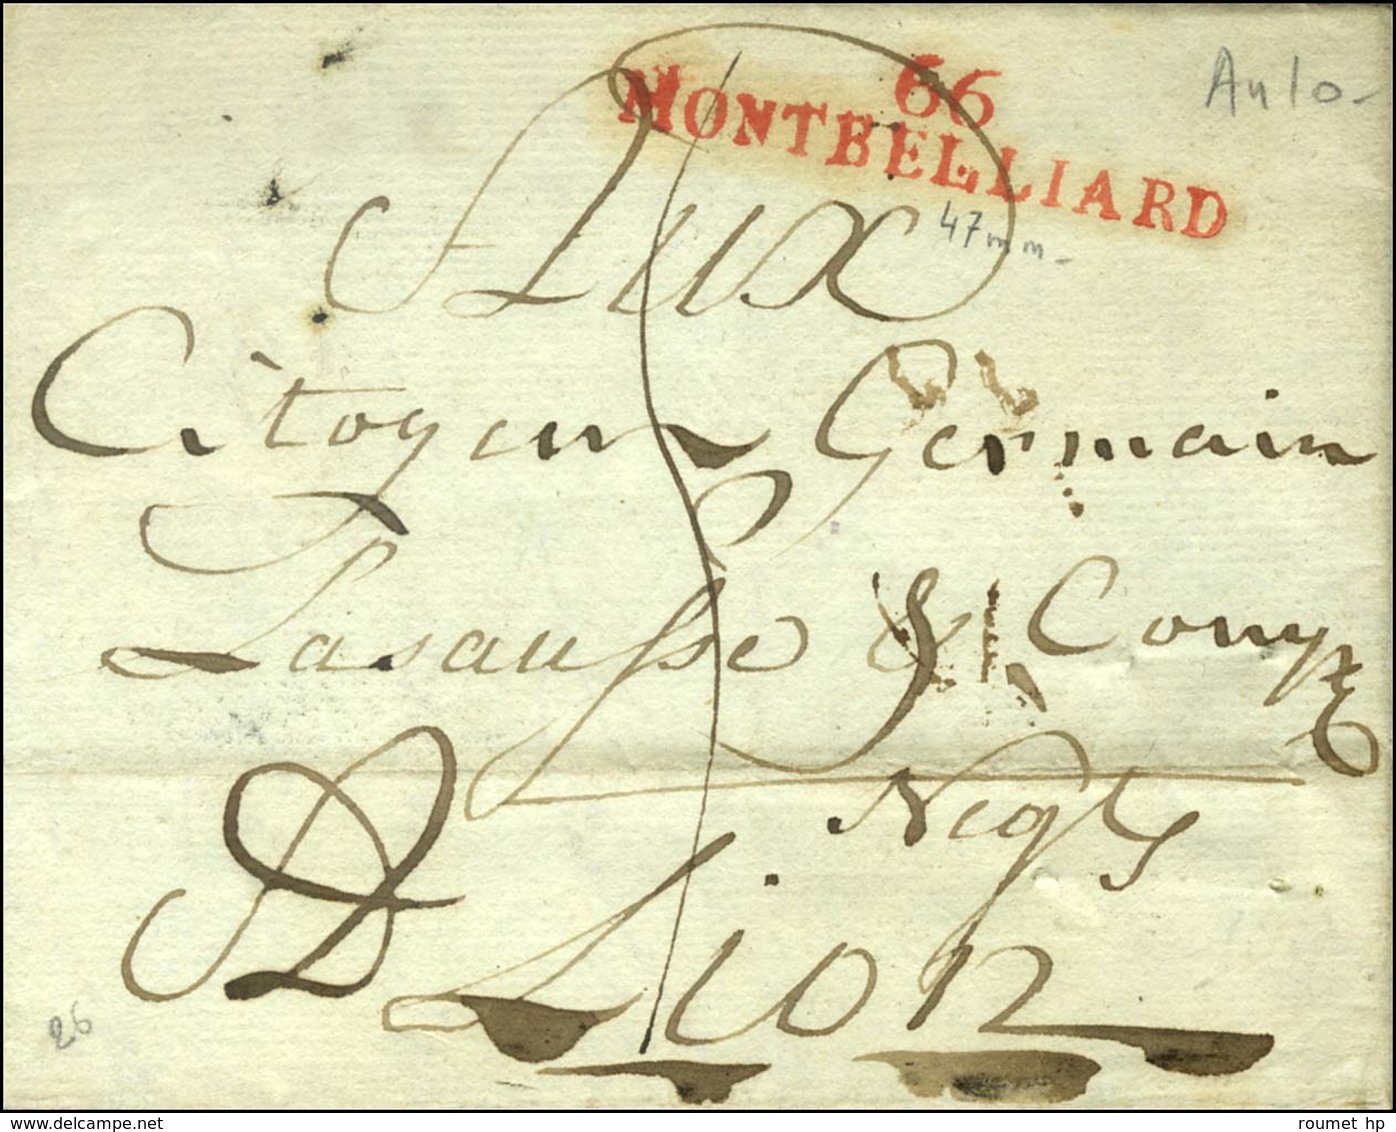 66
MONTBELLIARD
An 10-
47mm-
Aux
Citoyens Germain
Lasausse & Comp
Negts
A Lion
26
delcampe.net
roumet hp